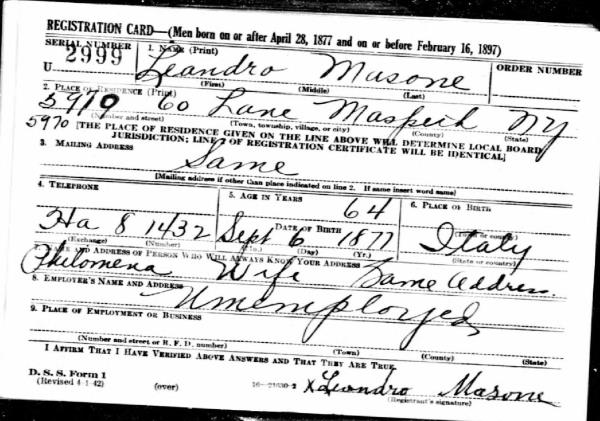 REGISTRATION CARD—(Men born on or after April 28, 1877 and on or before February 16, 1897)
SERIAL NUMBER 1. NAME (Print) ORDER NUMBER
U 2999 Leandro Masone
(First) (Middle) (Last)
2. PLACE OF RESIDENCE (Print)
5919 60 Lane Maspeth NY
(Number and street) (Town, township, village, or city) (County) (State)
5970 [THE PLACE OF RESIDENCE GIVEN ON THE LINE ABOVE WILL DETERMINE LOCAL BOARD
JURISDICTION; LINE 2 OF REGISTRATION CERTIFICATE WILL BE IDENTICAL]
3. MAILING ADDRESS
Same
[Mailing address if other than place indicated on line 2. If same insert word same]
4. TELEPHONE 5. AGE IN YEARS 6. PLACE OF BIRTH
64
DATE OF BIRTH (Town or county)
Ha 8 1432 Sept 6 1877 Italy
(Exchange) (Number) (Mo.) (Day) (Yr.) (State or country)
7. NAME AND ADDRESS OF PERSON WHO WILL ALWAYS KNOW YOUR ADDRESS
Philomena Wife Same Address.
8. EMPLOYER'S NAME AND ADDRESS
Unemployed
9. PLACE OF EMPLOYMENT OR BUSINESS
(Number and street or R. F. D. number) (Town) (County) (State)
I AFFIRM THAT I HAVE VERIFIED ABOVE ANSWERS AND THAT THEY ARE TRUE.
D. S. S. Form 1
(Revised 4-1-42) (over) 16—21630-2 X Leandro Masone
(Registrant's signature)